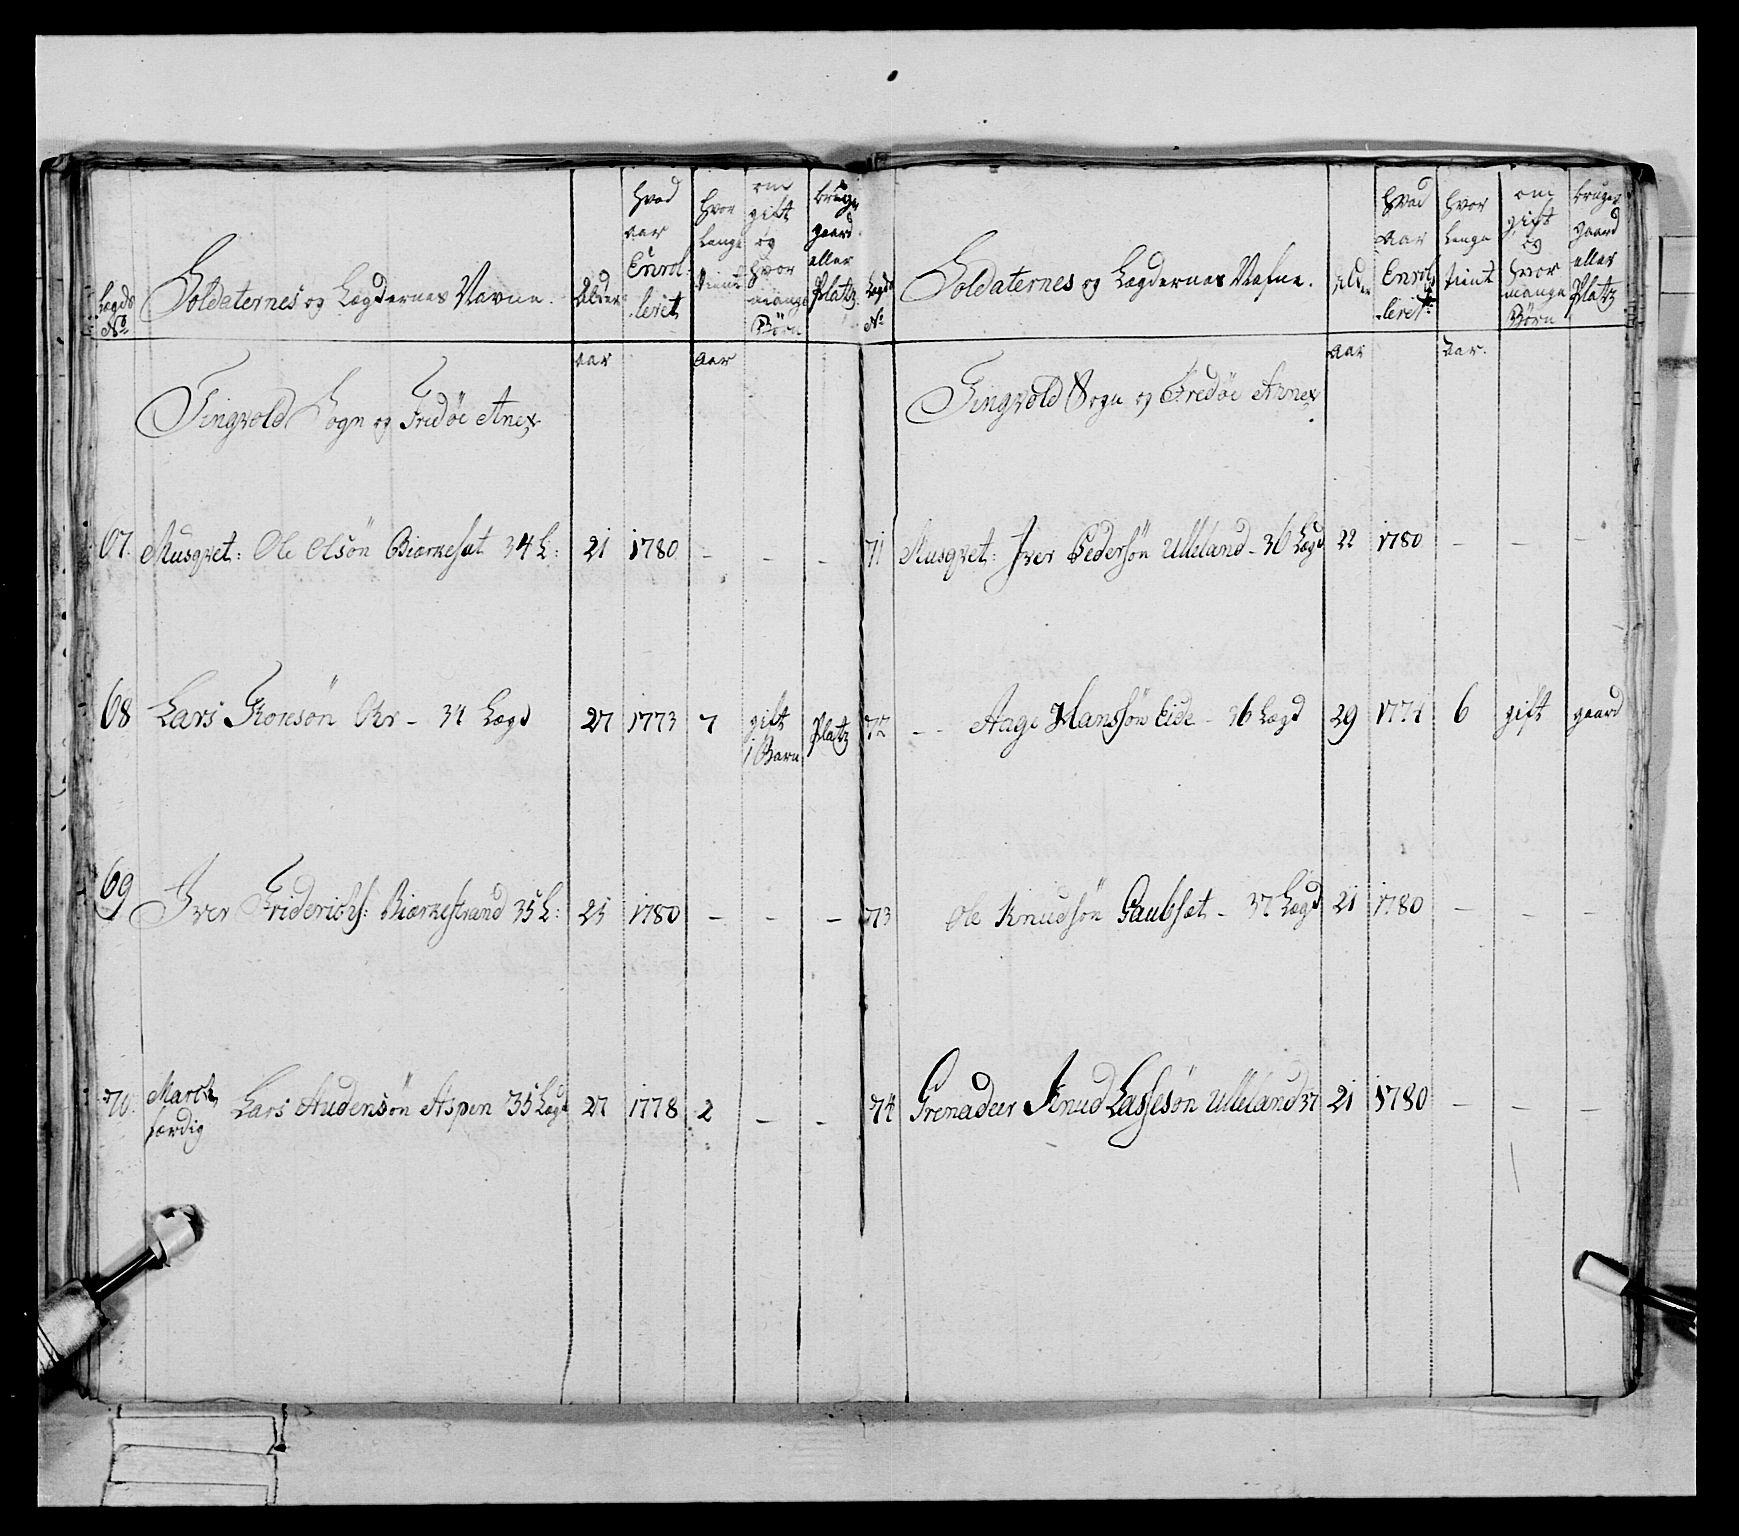 Lægds No
Soldaternes og Lægdernes Navne.
Alder
Hvad aar Enrol-leret
Hvor længe tient
om gift og hvor mange Børn
bruger gaard eller Platz
aar
aar
Tingvold Sogn og Fredøe Anex
67. Musqvet: Ole Olsön Biørkesæt 34 L: 21 1780 - - -
68 Lars - 34 Lægd 27 1773 7 gift 1 Barn Platz
69 Iver Friderichs: Biørkestrand 35 L: 25 1780 - - -
70. March færdig Lars Andersön Aspen 35 Lægd 27 1778 2 - -
Lægds No
Soldaternes og Lægdernes Nafne.
Alder
Hvad Aar Enrol-leret
Hvor længe tient
om gift og hvor mange Børn
bruger gaard eller Platz
Aar
Aar.
Tingvold Sogn og Fredøe Annex
71 Musqvet: Iver Pedersön Ulleland - 36 Lægd 22 1780 - - -
72 - - Aage Hanssön Eide - 36 Lægd 29 1774 6 gift gaard
73 Ole Knudsön Gaubsæt - 37 Lægd 21 1780 - - -
74 Grenadeer Knud Lassesön Ulleland 37 21 1780 - - -